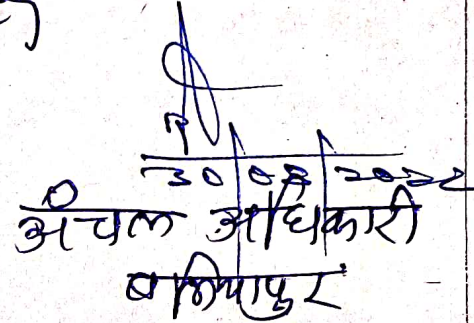 30 2022
अंचल अधिकारी
बलियापुर